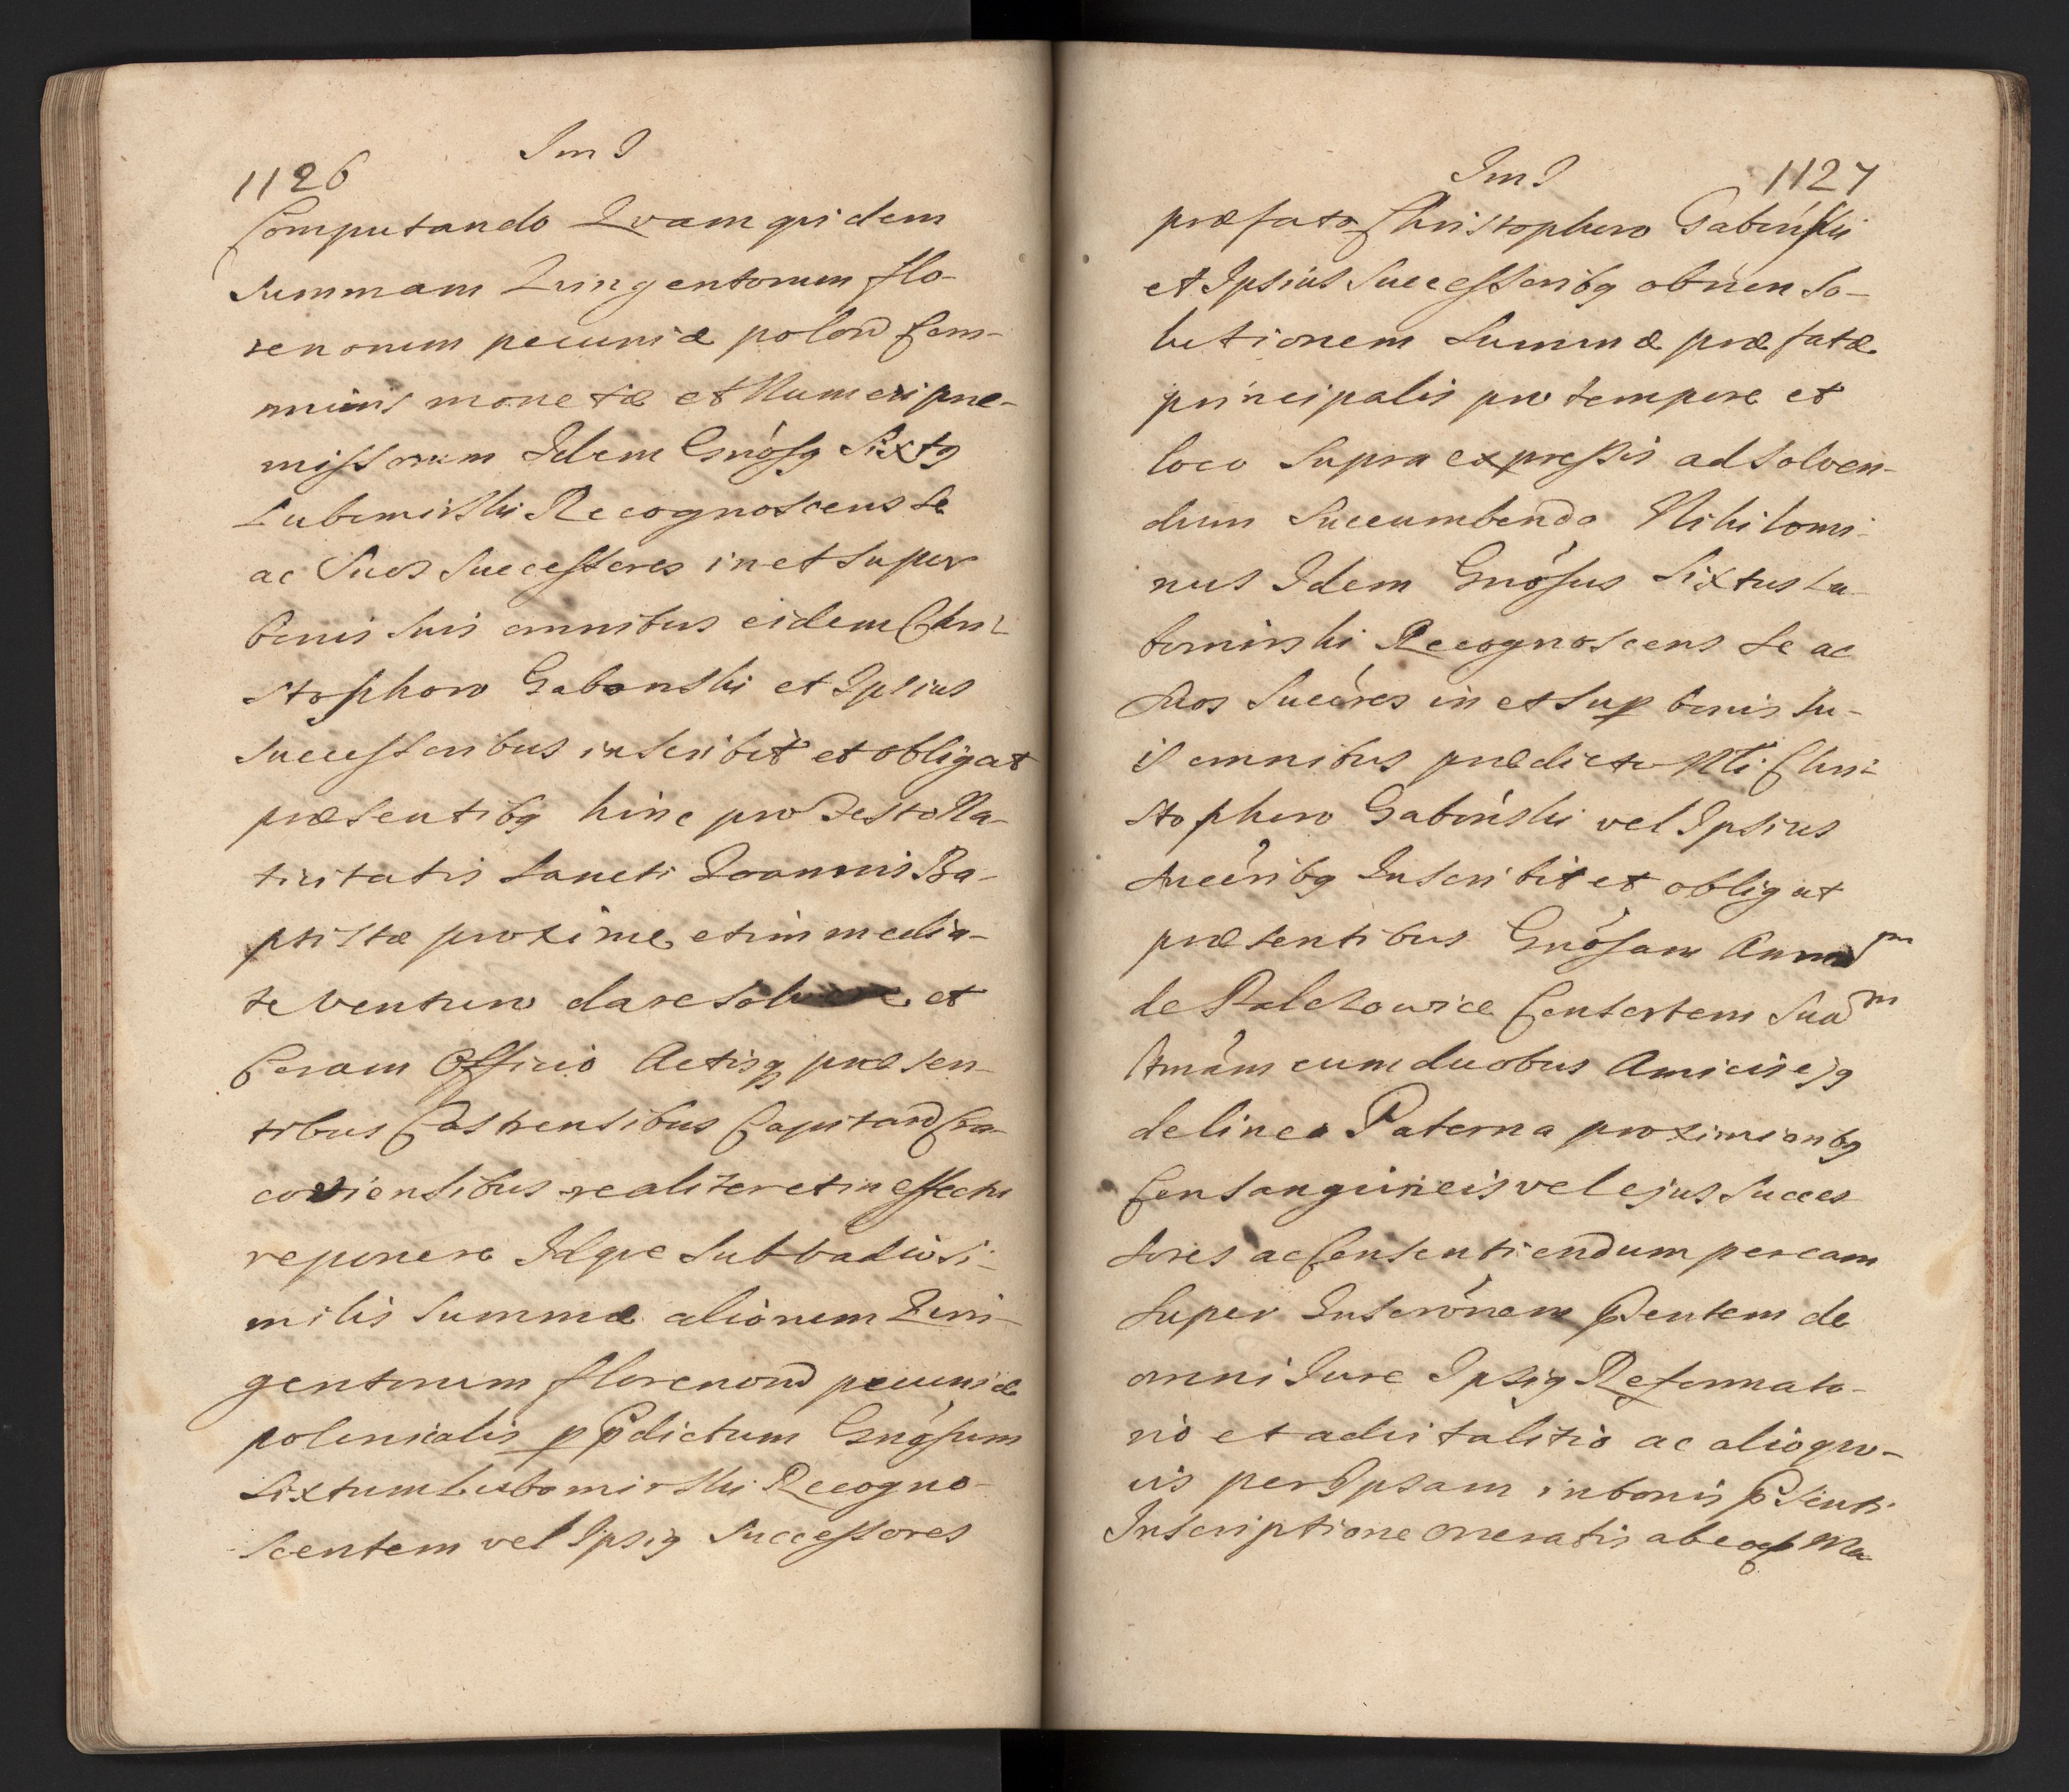 Im I
1126
Computando Qvam qvidem
summam Quingentorum flo-
renorum pecuniæ polon Com-
munis monetæ et Numeri præ-
missorum Idem Gnósg Sixtg
Lubomirski Recognoscens se
ac Suos Successores in et super
bonis suis omnibus eidem Chri-
stophoro Gabonski et Ipsius
successoribus inscribit et obligat
præsentibg hinc pro Festo Na-
tivitatis Sancti Ioannis Ba-
ptistæ proxime et immedia-
te venturo dare et
Coram Officio Actisq præsen-
tibus Castrensibus Capitan Cra-
coviensibus realiter et in effectu
reponere Idqve sub vadio si-
milis summæ aliorum Qvin-
gentorum florenorum pecuniæ
polonicalis p Pdictum Gnósum
Sixtum Lubomirski Recogno-
scentem vel Ipsig Successores
Im I 1127
præfato Christophoro Gabinski
et Ipsius Successoribg ob non so-
lutionem summæ præfatæ
principalis pro tempore et
loco supra expressis ad solven-
dum succumbendo Nihilomi-
nus Idem Gnósus Sixtus Lu-
bomirski Recognoscens se ac
suos Succéres in et sup bonis su-
is omnibus prædicto Nti Chri-
stophoro Gabinski vel Ipsius
succéribg Inscribit et obligat
præsentibus Gnósam Annam
de Palczowice Consortem suam
Amám cum duobus Amicis ejg
de linea Paterna proximioribg
Consangvineis vel ejus succes
sores ac Consentiendum per eam
super Inscrónem Psentem de
omni Iure Ipsig Reformato-
rio et advitalitio ac alioqvo-
vis per Ipsam in bonis Psenti
Inscriptione oneratis ab eog Ma-